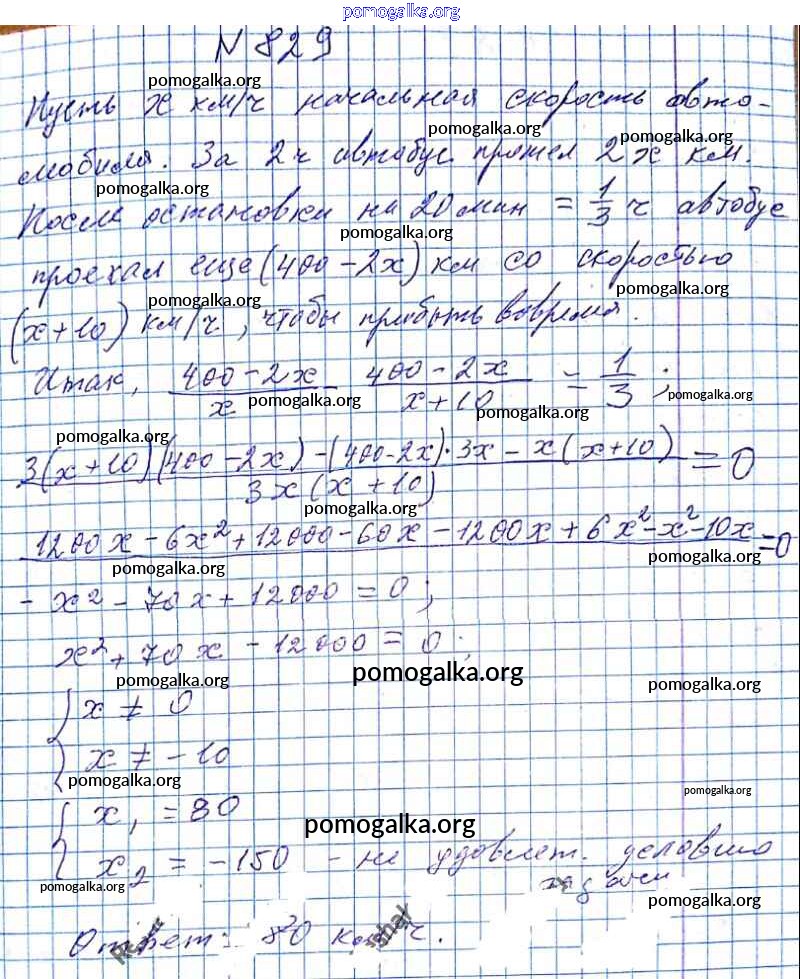 pomogalka.org
N 829
pomogalka.org
Пусть x км/ч начальная скорость авто-
pomogalka.org pomogalka.org
мобиля. За 2 ч автобус прошел 2x км.
pomogalka.org
После остановки на 20 мин = 1/3 ч автобус
pomogalka.org
проехал еще (400 - 2x) км со скоростью
pomogalka.org pomogalka.org
(x + 10) км/ч, чтобы прибыть вовремя.
Итак, (400 - 2x)/x - (400 - 2x)/(x + 10) = 1/3;
pomogalka.org pomogalka.org pomogalka.org
pomogalka.org
(3(x + 10)(400 - 2x) - (400 - 2x)·3x - x(x + 10))/(3x(x + 10)) = 0
pomogalka.org
1200x - 6x² + 12000 - 60x - 1200x + 6x² - x² - 10x = 0
pomogalka.org pomogalka.org
- x² - 70x + 12000 = 0;
x² + 70x - 12000 = 0;
pomogalka.org pomogalka.org pomogalka.org
{ x ≠ 0
x ≠ -10
pomogalka.org pomogalka.org
{ x₁ = 80
pomogalka.org
x₂ = -150 - не удовлет. условию
задачи
pomogalka.org pomogalka.org
Ответ: 80 км/ч.